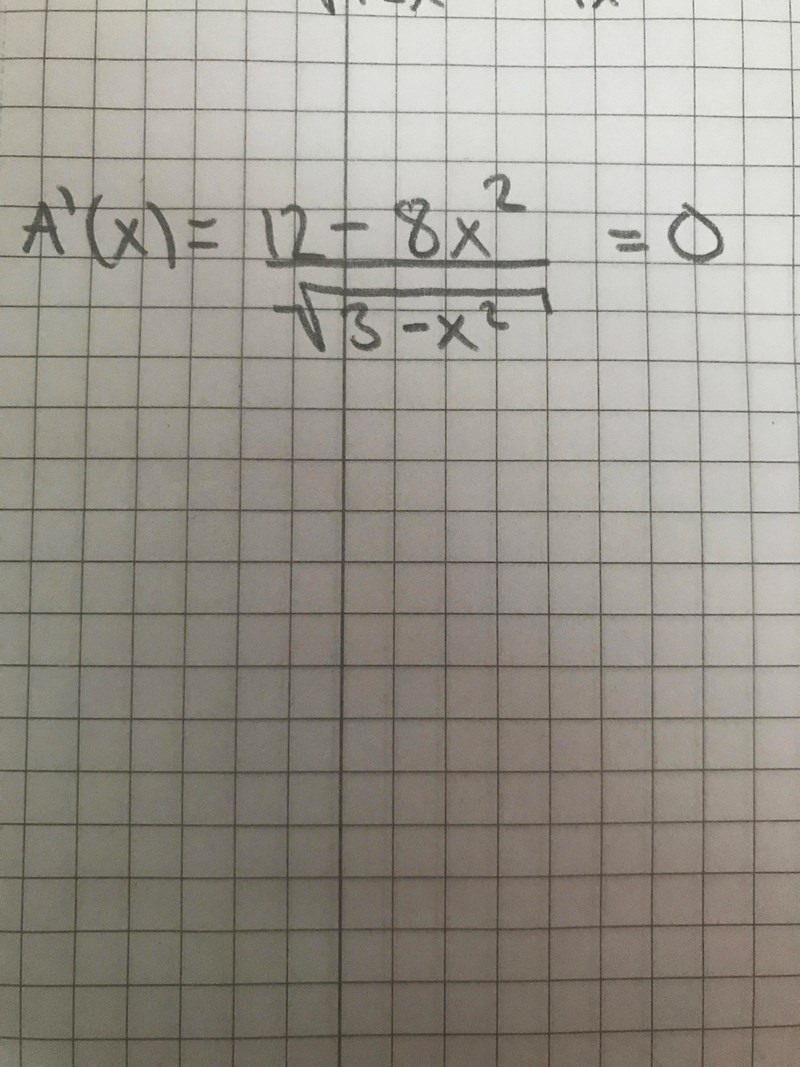 A'(x) = 12 - 8x² = 0
√3 - x²